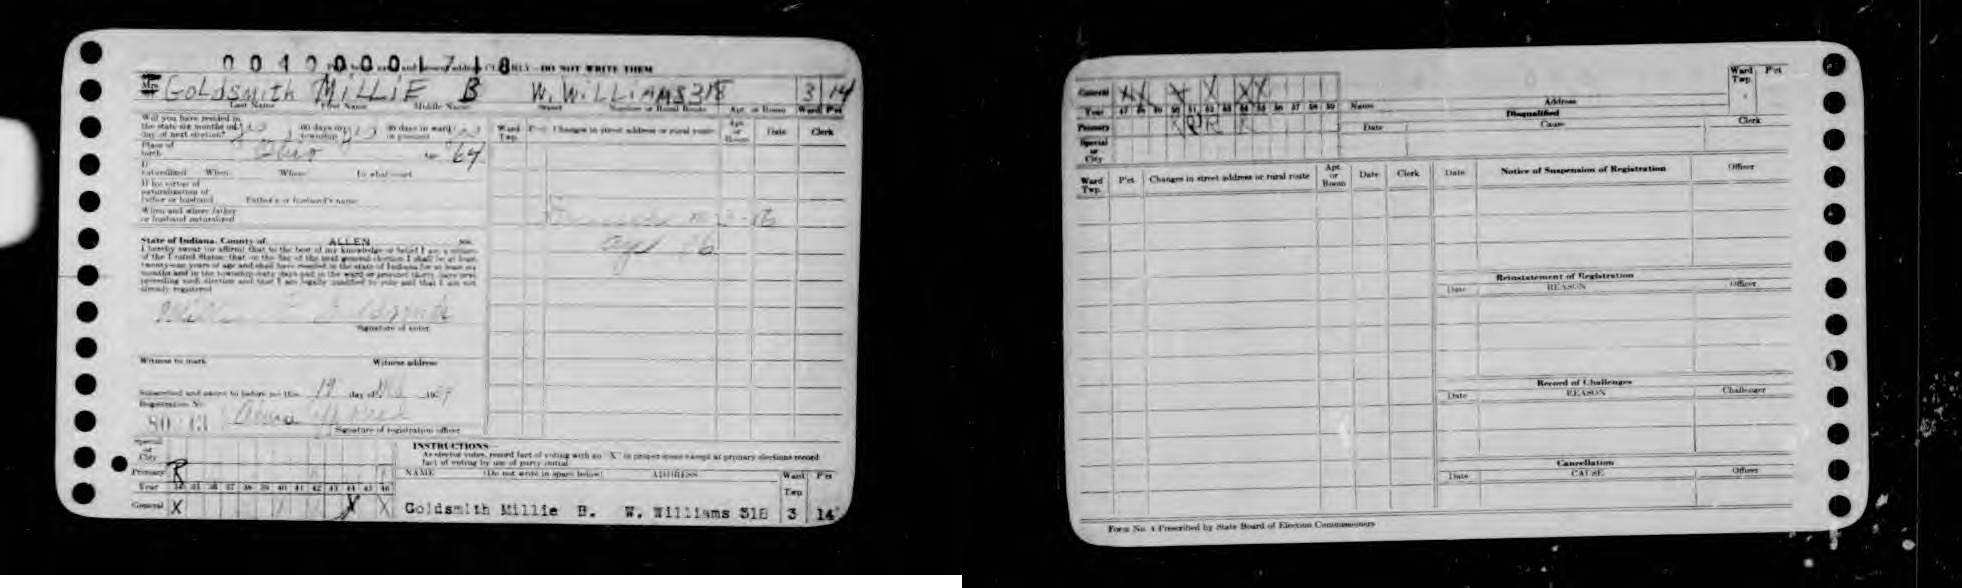 00400001718 DO NOT WRITE THEM
Mrs. Goldsmith MILLIE B W. WILLIAMS 318 3 14
Last Name First Name Middle Name Street Number or Rural Route Apt. or Room Ward Pct
Will you have resided in
the state six months on 60 days in 30 days in ward
day of next election? township or precinct
Ward Twp. Changes in street address or rural route Apt. or Room Date Clerk
Place of
birth Ohio 64
If
naturalized When Where In what court
If by virtue of
naturalization of
father or husband Father's or husband's name
When and where father
or husband naturalized
age 86
State of Indiana, County of ALLEN
I hereby swear (or affirm) that to the best of my knowledge or belief I am a citizen
of the United States; that on the day of the next general election I shall be at least
twenty-one years of age and shall have resided in the state of Indiana for at least six
months and in the township sixty days and in the ward or precinct thirty days next
preceding such election and that I am legally qualified to vote and that I am not
already registered
Millie B Goldsmith
Signature of voter
Witness to mark Witness address
Subscribed and sworn to before me this 19 day of 19
Registration No.
Signature of registration officer
Special or City
Primary R
Year 34 35 36 37 38 39 40 41 42 43 44 45 46
General X X X
INSTRUCTIONS
As elector votes, record fact of voting with an "X" in proper space except at primary elections record
fact of voting by use of party initial
NAME (Do not write in space below) ADDRESS Ward Twp Pct
Goldsmith Millie B. W. Williams 318 3 14
General X X X X X X
Year 47 48 49 50 51 52 53 54 55 56 57 58 59
Primary R R R R
Special or City
Name Address Ward Twp. P'ct
Disqualified
Date Cause Clerk
Ward Twp. P'ct. Changes in street address or rural route Apt. or Room Date Clerk
Date Notice of Suspension of Registration Officer
Reinstatement of Registration
Date REASON Officer
Record of Challenges
Date REASON Challenger
Cancellation
Date CAUSE Officer
Form No. 4 Prescribed by State Board of Election Commissioners